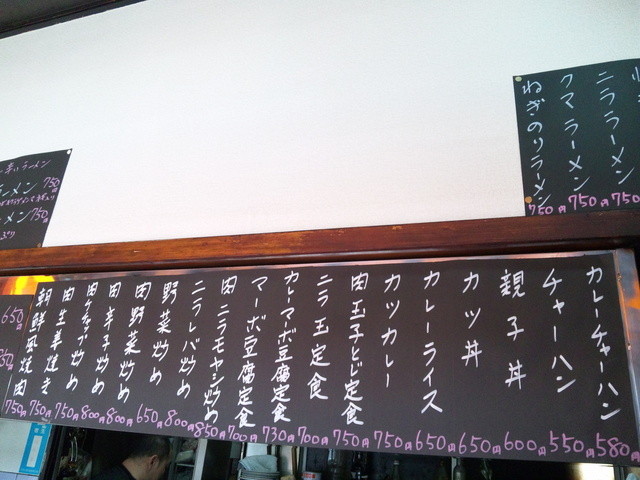 ニララーメン 750円
クマラーメン 750円
ねぎのりラーメン 750円
ラーメン
ラーメン 750円
メン 750円
カレーチャーハン 580円
チャーハン 550円
親子丼 600円
カツ丼 650円
カレーライス 650円
カツカレー 750円
肉玉子とじ定食 750円
ニラ玉定食 700円
カレーマーボ豆腐定食 730円
マーボ豆腐定食 700円
肉ニラモヤシ炒め 850円
ニラレバ炒め 800円
野菜炒め 650円
肉野菜炒め 800円
肉辛子炒め 800円
肉ケチャップ炒め 750円
肉生姜焼き 750円
朝鮮風焼肉 750円
650円